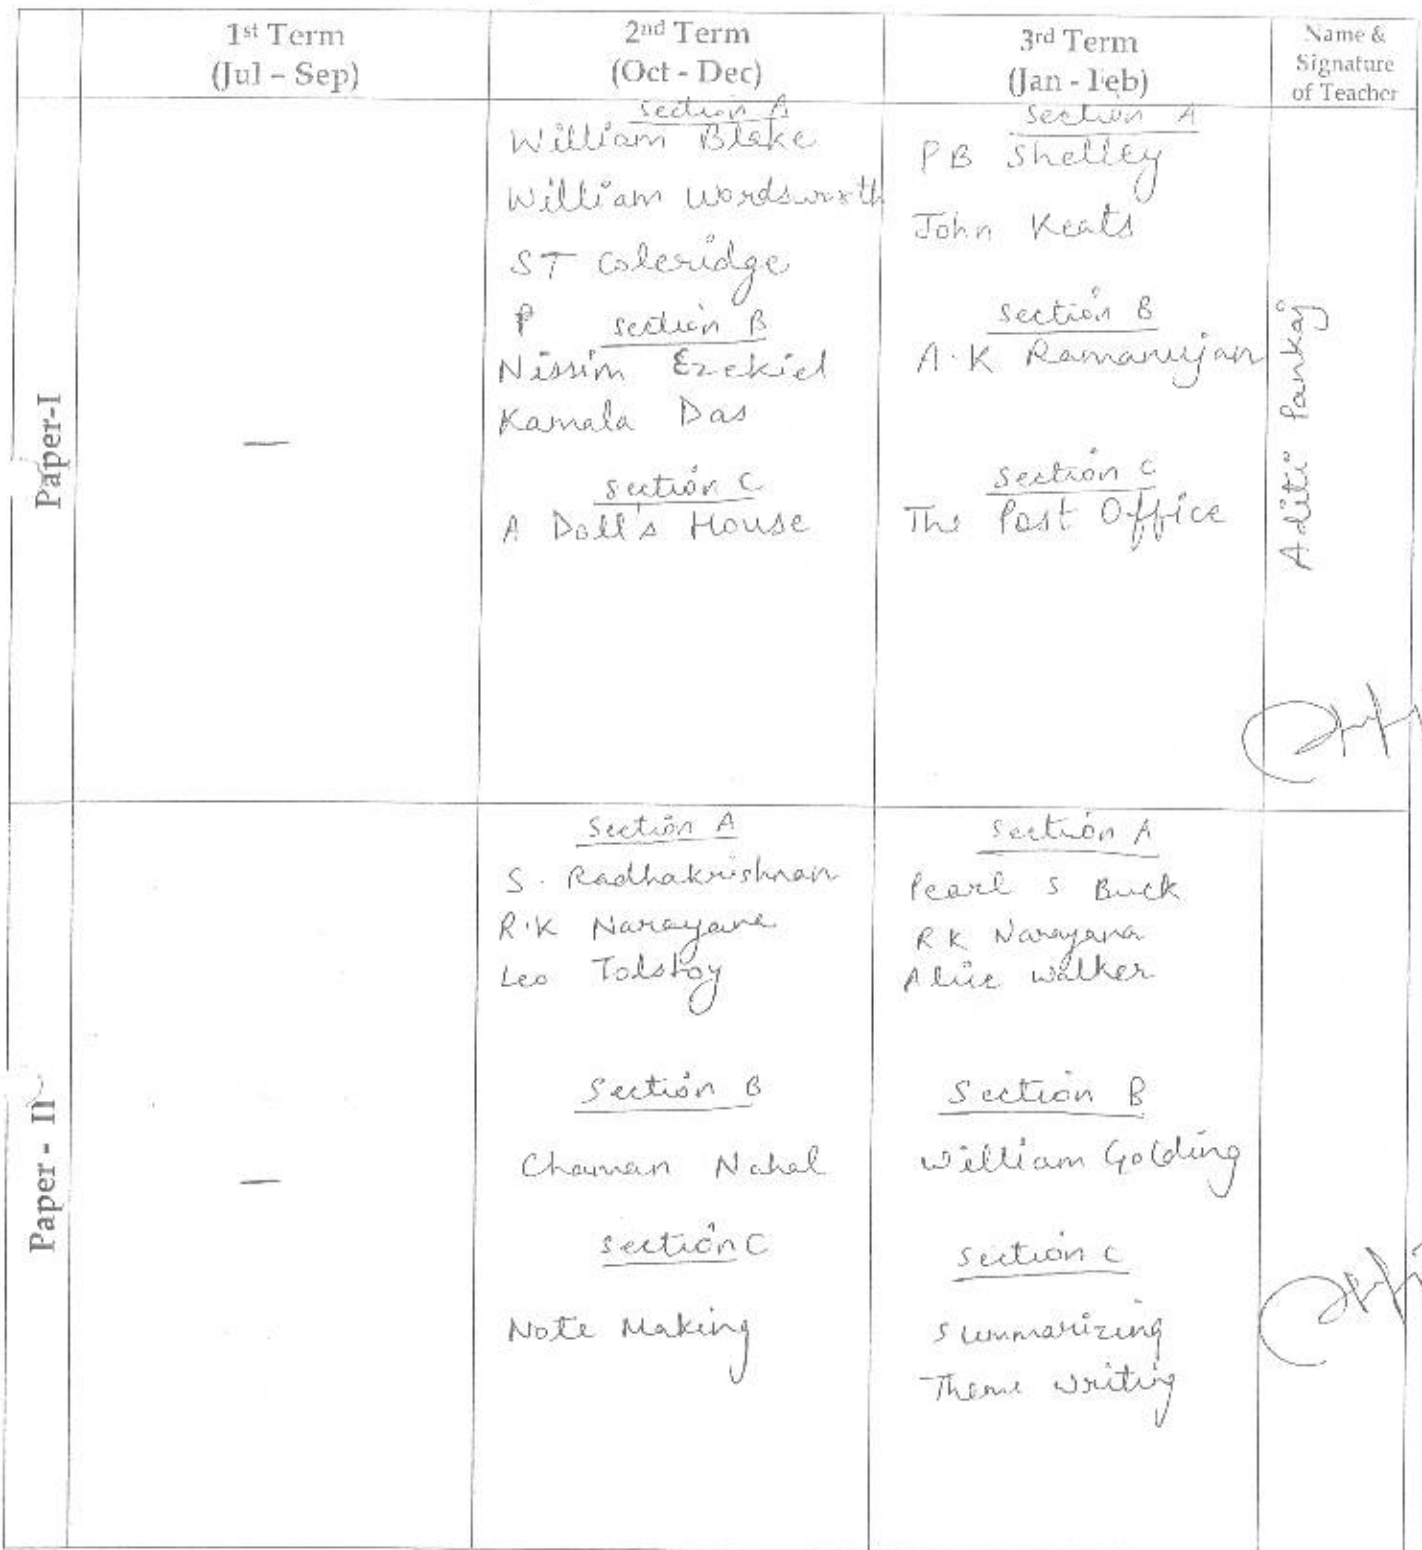 1st Term
(Jul – Sep)
2nd Term
(Oct - Dec)
3rd Term
(Jan - Feb)
Name &
Signature
of Teacher
Paper-I
—
Section A
William Blake
William Wordsworth
ST Coleridge
P
Section B
Nissim Ezekiel
Kamala Das
Section C
A Doll's House
Section A
PB Shelley
John Keats
Section B
A.K Ramanujan
Section C
The Post Office
Aditi Pankaj
Paper - II
—
Section A
S. Radhakrishnan
R.K Narayana
Leo Tolstoy
Section B
Chaman Nahal
Section C
Note Making
Section A
Pearl S Buck
RK Narayana
Alice Walker
Section B
William Golding
Section C
Summarizing
Theme Writing